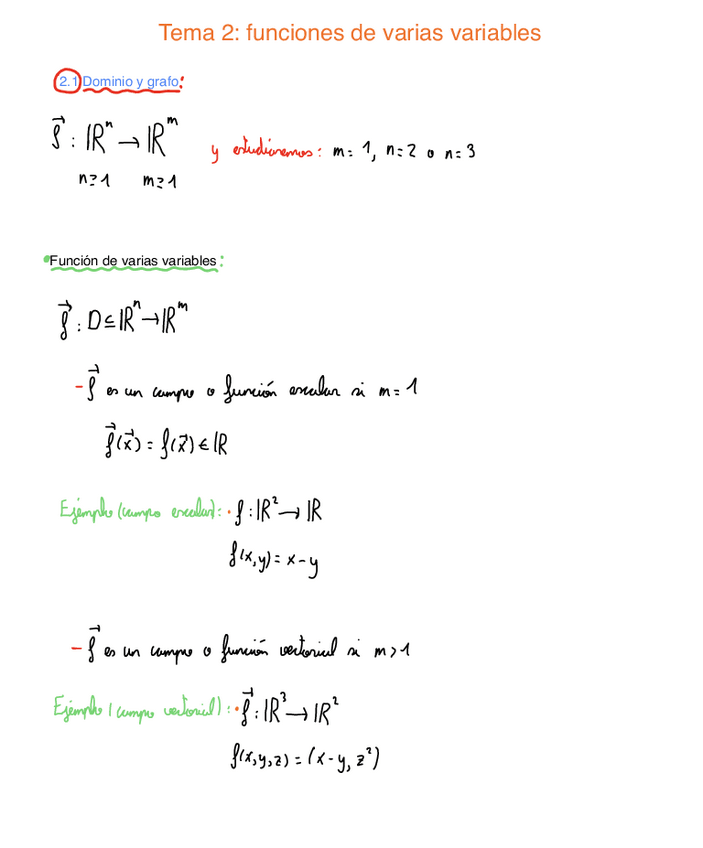 Tema 2: funciones de varias variables
2.1 Dominio y grafo:
f⃗ : ℝⁿ → ℝᵐ y estudiaremos: m = 1, n = 2 o n = 3
n ≥ 1 m ≥ 1
Función de varias variables:
f⃗ : D ⊆ ℝⁿ → ℝᵐ
- f⃗ es un campo o función escalar si m = 1
f⃗(x⃗) = f(x⃗) ∈ ℝ
Ejemplo (campo escalar): · f : ℝ² → ℝ
f(x,y) = x - y
- f⃗ es un campo o función vectorial si m > 1
Ejemplo (campo vectorial): · f⃗ : ℝ³ → ℝ²
f(x,y,z) = (x - y, z²)